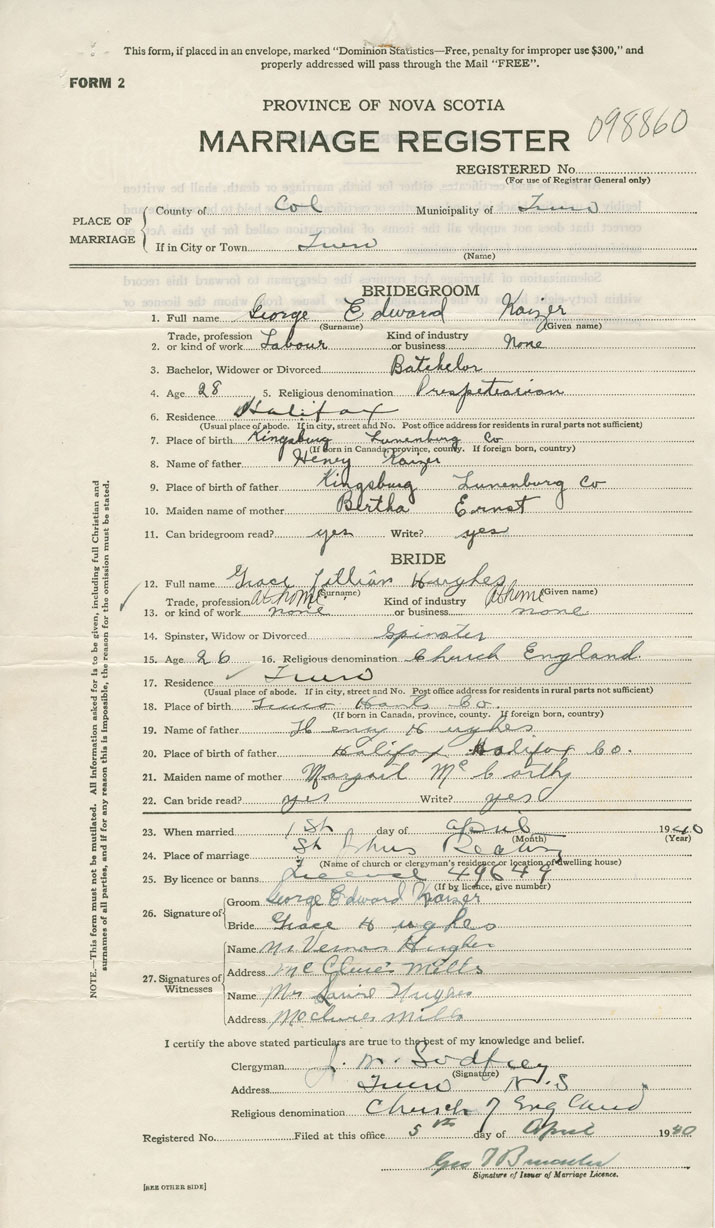 This form, if placed in an envelope, marked "Dominion Statistics—Free, penalty for improper use $300," and
properly addressed will pass through the Mail "FREE".
FORM 2
PROVINCE OF NOVA SCOTIA
098860
MARRIAGE REGISTER
REGISTERED No.
(For use of Registrar General only)
PLACE OF MARRIAGE
County of Col Municipality of Truro
If in City or Town Truro
(Name)
BRIDEGROOM
1. Full name George Edward Kaizer
(Surname) (Given name)
2. Trade, profession or kind of work Labour Kind of industry or business None
3. Bachelor, Widower or Divorced Batchelor
4. Age 28 5. Religious denomination Prespeterian
6. Residence Halifax
(Usual place of abode. If in city, street and No. Post office address for residents in rural parts not sufficient)
7. Place of birth Kingsburg Lunenburg Co
(If born in Canada, province, county. If foreign born, country)
8. Name of father Henry Kaizer
9. Place of birth of father Kingsburg Lunenburg Co
10. Maiden name of mother Bertha Ernst
11. Can bridegroom read? yes Write? yes
BRIDE
12. Full name Grace Lillian Hughes
(Surname) (Given name)
13. Trade, profession or kind of work at home none Kind of industry or business at home none
14. Spinster, Widow or Divorced Spinster
15. Age 26 16. Religious denomination Church England
17. Residence Truro
(Usual place of abode. If in city, street and No. Post office address for residents in rural parts not sufficient)
18. Place of birth Hants Co.
(If born in Canada, province, county. If foreign born, country)
19. Name of father Henry Hughes
20. Place of birth of father Halifax Halifax Co.
21. Maiden name of mother Margait McCorthy
22. Can bride read? yes Write? yes
23. When married 1 St day of April 1940
(Month) (Year)
24. Place of marriage St Johns
(Name of church or clergyman's residence or location of dwelling house)
25. By licence or banns License 49649
(If by licence, give number)
26. Signature of
Groom George Edward Kaizer
Bride Grace Hughes
27. Signatures of Witnesses
Name Mr Vernon Hughes
Address McClures Mills
Name Mrs Hughes
Address McClures Mills
I certify the above stated particulars are true to the best of my knowledge and belief.
Clergyman J. M. Godfrey
(Signature)
Address Truro N.S
Religious denomination Church of England
Registered No. Filed at this office 5th day of April 1940
Geo
Signature of Issuer of Marriage Licence.
[SEE OTHER SIDE]
NOTE.—This form must not be mutilated. All information asked for is to be given, including full Christian and
surnames of all parties, and if for any reason this is impossible, the reason for the omission must be stated.